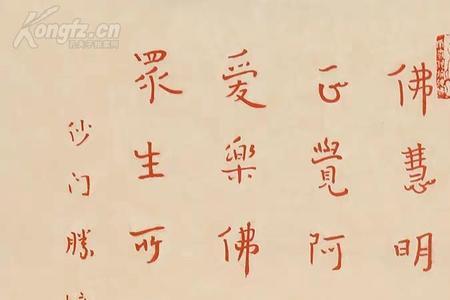 佛慧明
正覺阿
爱樂佛
眾生所
沙门勝
Kongfz.cn
孔夫子旧书网